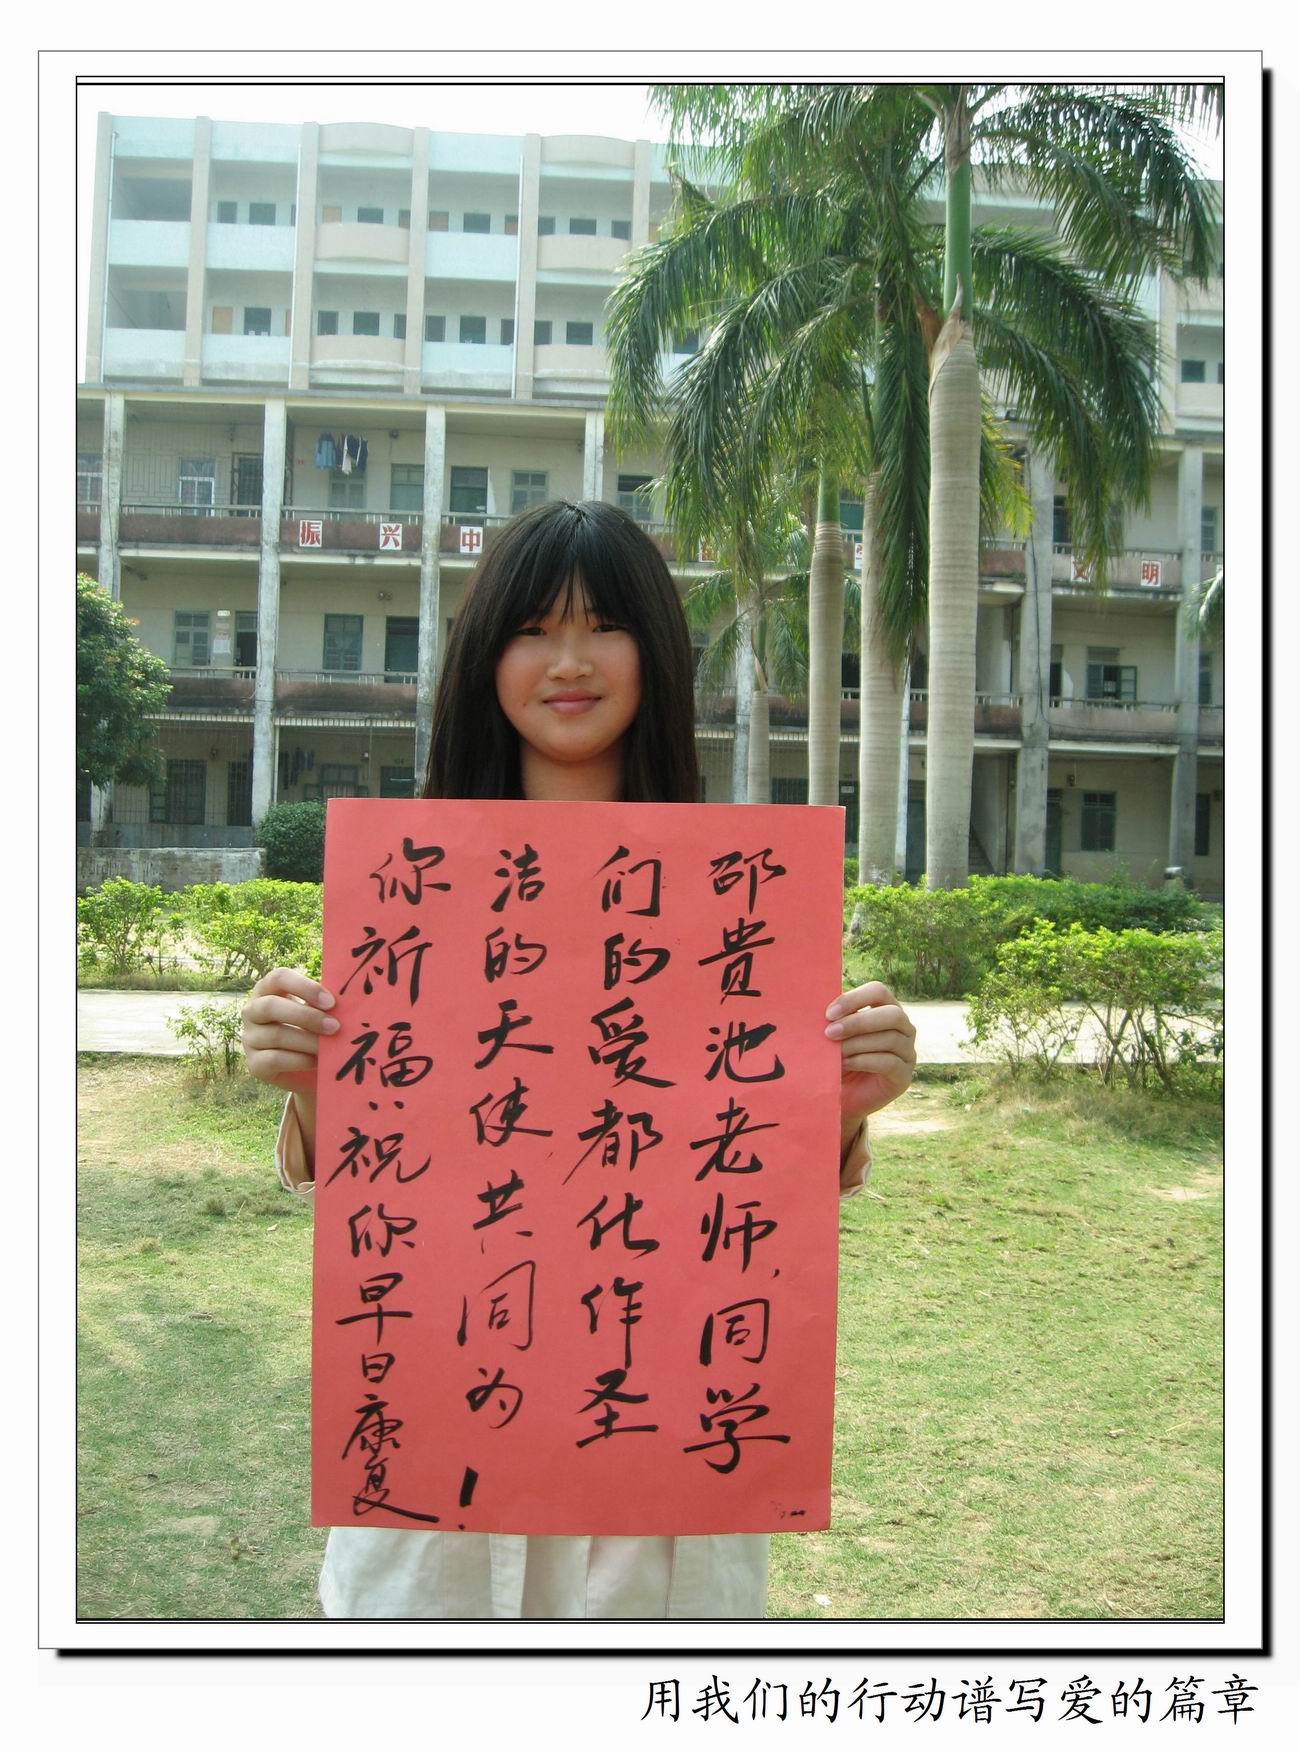 振兴中
文明
邵贵池老师,同学
们的爱都化作圣
洁的天使共同为
你祈福..祝你早日康复!
用我们的行动谱写爱的篇章